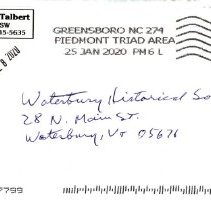 Talbert
SW
5-5635
8 2020
GREENSBORO NC 274
PIEDMONT TRIAD AREA
25 JAN 2020 PM 6 L
Waterbury Historical So
28 N. Main St.
Waterbury, VT 05676
7799